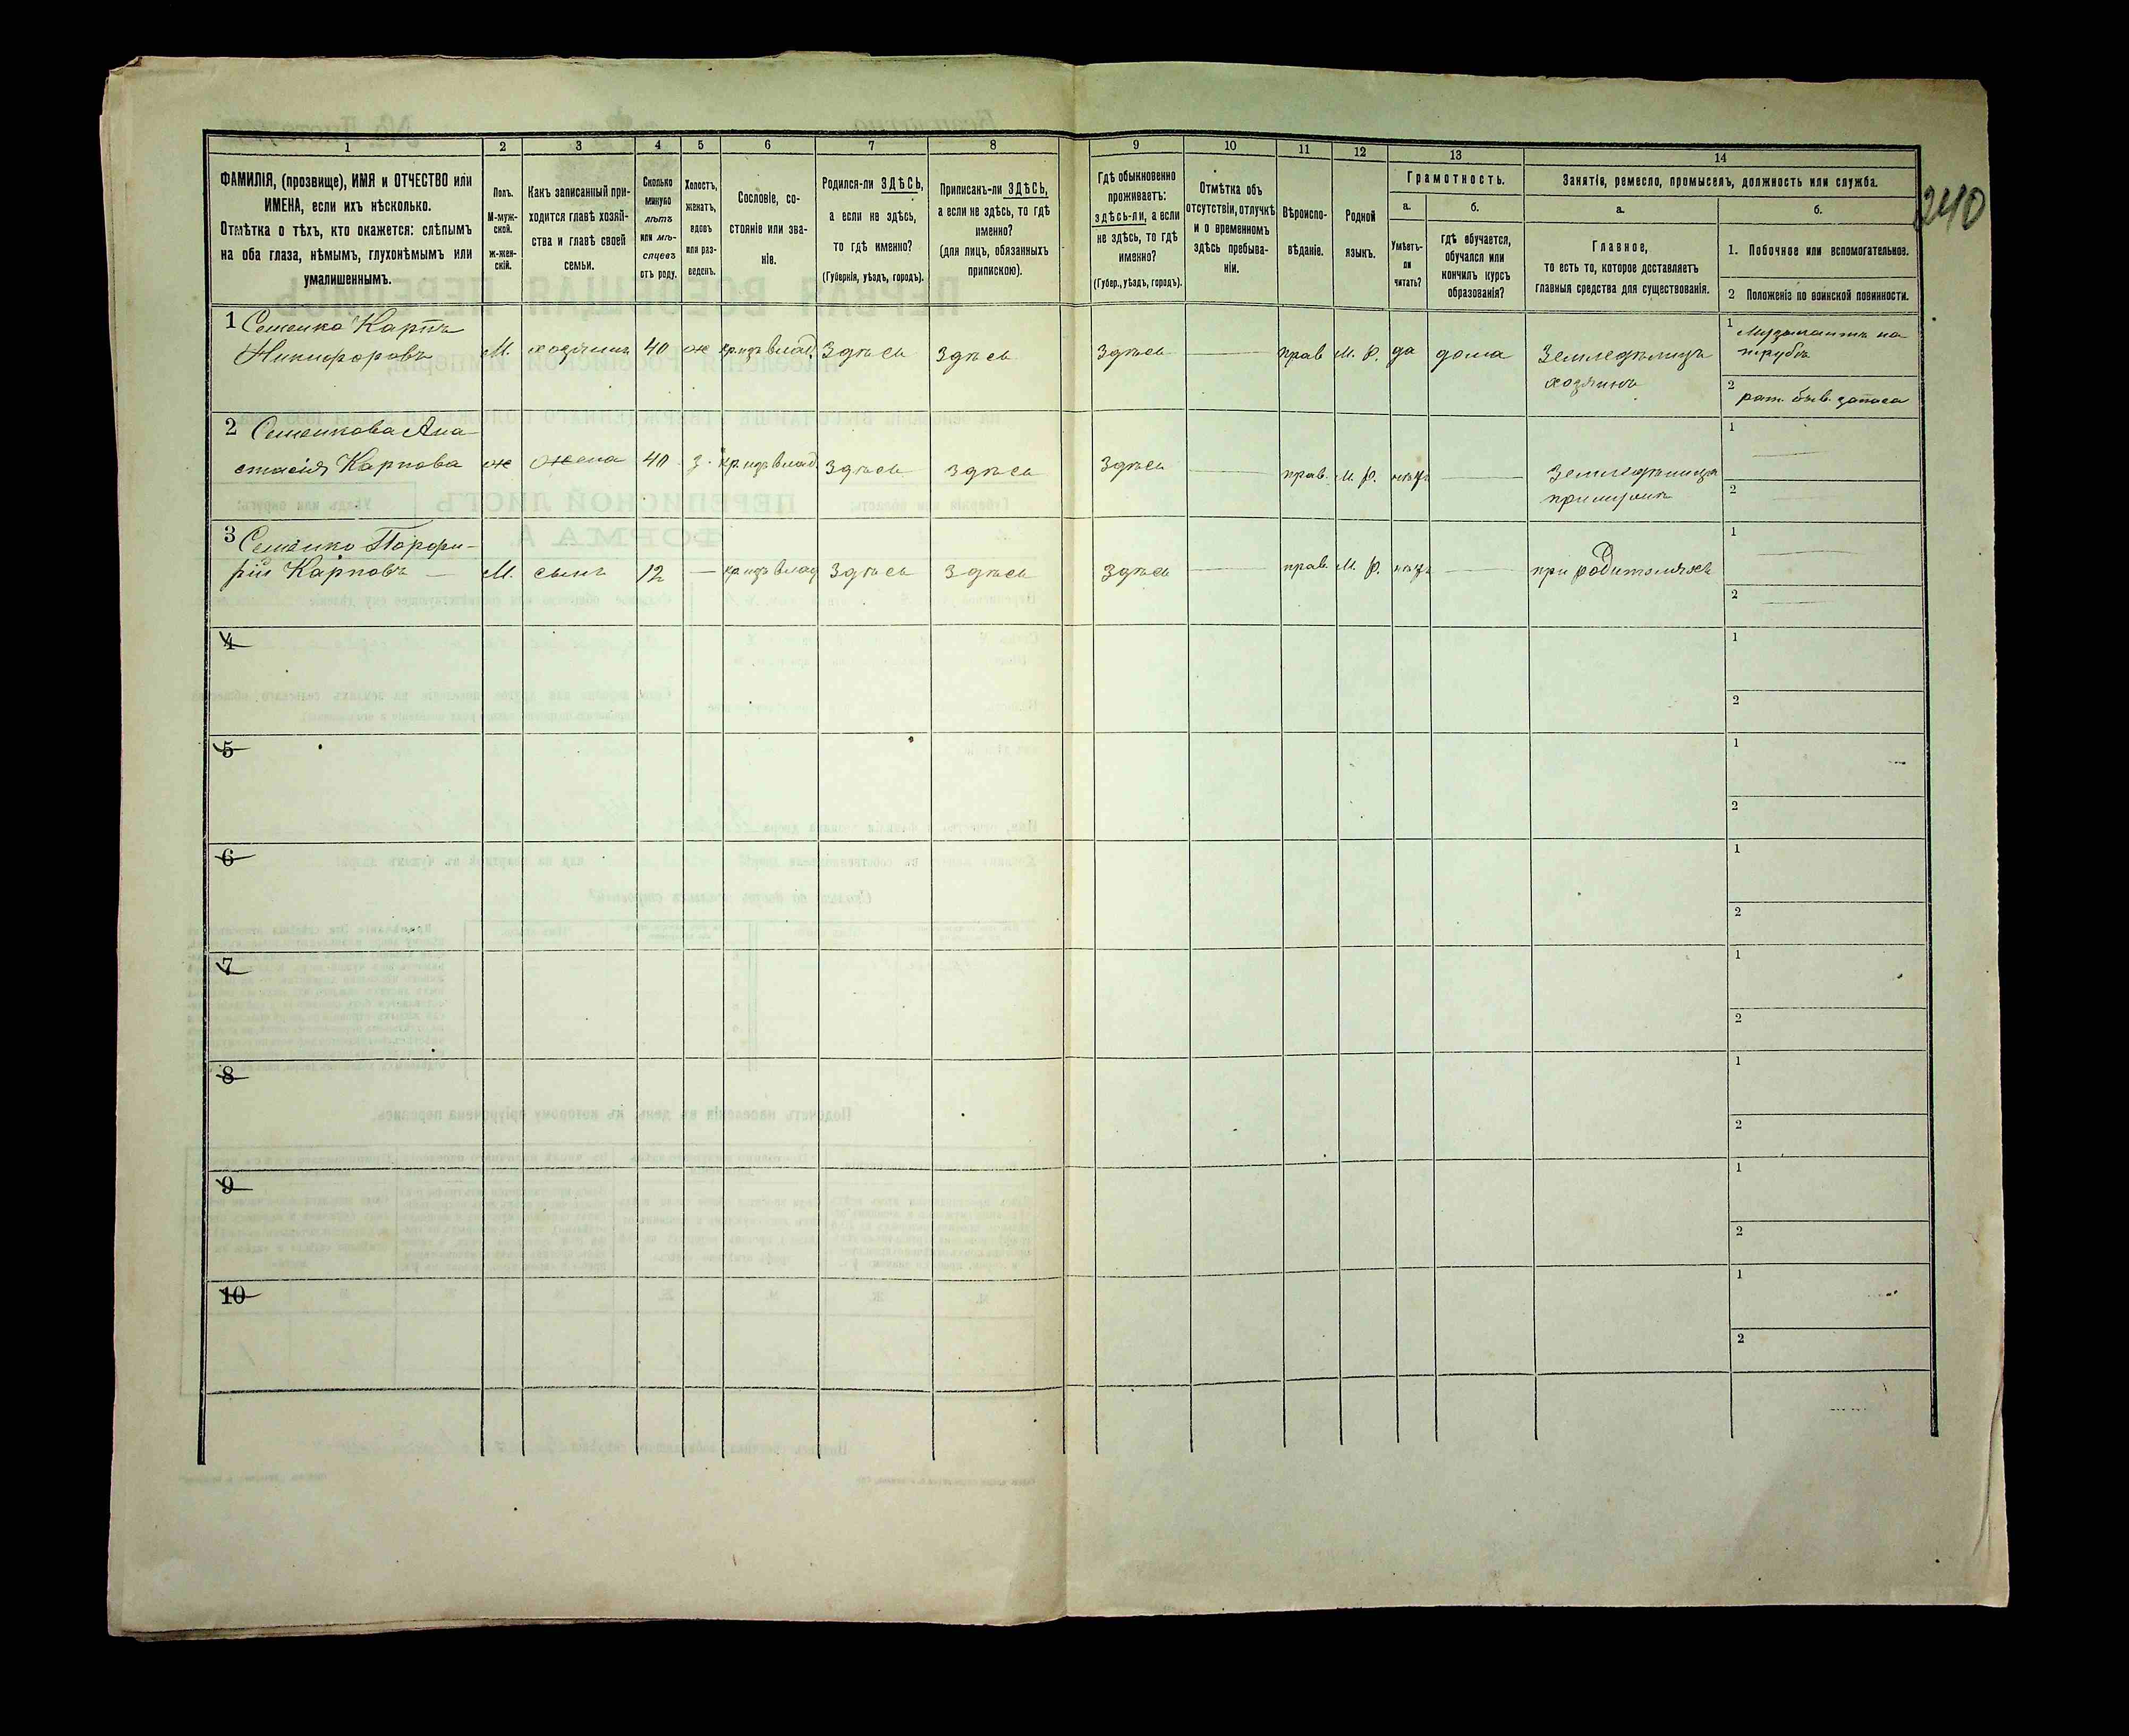 1 2 3 4 5 6 7 8 9 10 11 12 13 14
ФАМИЛІЯ, (прозвище), ИМЯ и ОТЧЕСТВО или
ИМЕНА, если ихъ нѣсколько.
Отмѣтка о тѣхъ, кто окажется: слѣпымъ
на оба глаза, нѣмымъ, глухонѣмымъ или
умалишеннымъ.
Полъ.
М-муж-
ской.
ж-жен-
скій.
Какъ записанный при-
ходится главѣ хозяй-
ства и главѣ своей
семьи.
Сколько
минуло
лѣтъ
или мѣ-
сяцевъ
отъ роду.
Холостъ,
женатъ,
вдовъ
или раз-
веденъ.
Сословіе, со-
стояніе или зва-
ніе.
Родился-ли ЗДѢСЬ,
а если не здѣсь,
то гдѣ именно?
(Губернія, уѣздъ, городъ).
Приписанъ-ли ЗДѢСЬ,
а если не здѣсь, то гдѣ
именно?
(для лицъ, обязанныхъ
припискою).
Гдѣ обыкновенно
проживаетъ:
здѣсь-ли, а если
не здѣсь, то гдѣ
именно?
(Губер., уѣздъ, городъ).
Отмѣтка объ
отсутствіи, отлучкѣ
и о временномъ
здѣсь пребыва-
ніи.
Вѣроиспо-
вѣданіе.
Родной
языкъ.
Грамотность.
а.
Умѣетъ-
ли
читать?
б.
гдѣ обучается,
обучался или
кончилъ курсъ
образованія?
Занятіе, ремесло, промыселъ, должность или служба.
а.
Главное,
то есть то, которое доставляетъ
главныя средства для существованія.
б.
1. Побочное или вспомогательное.
2 Положеніе по воинской повинности.
240
1 Семенко Карпъ
Никифоровъ М. хозяинъ 40 ж кр. изъ влад. Здѣсь Здѣсь Здѣсь прав М. р. да дома Земледѣлецъ
хозяинъ
1 Музыкантъ на
трубѣ
2
2 Семенкова Ана-
стасія Карпова ж жена 40 з. кр. изъ влад. Здѣсь Здѣсь Здѣсь прав. М. р. нѣтъ
1
2
3 Семенко Порфи-
рій Карповъ М. сынъ 12 кр. изъ влад Здѣсь Здѣсь Здѣсь прав. М. р. нѣтъ при родителяхъ
1
2
4
1
2
5
1
2
6
1
2
7
1
2
8
1
2
9
1
2
10
1
2